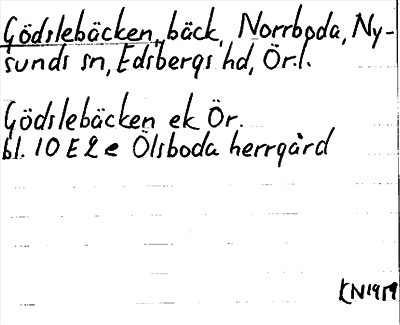 Gödslebäcken, bäck, Norrboda, Ny-
sunds sn, Edsbergs hd, Ör.l.
Gödslebäcken ek Ör.
bl. 10 E 2 e Ölsboda herrgård
KN1959